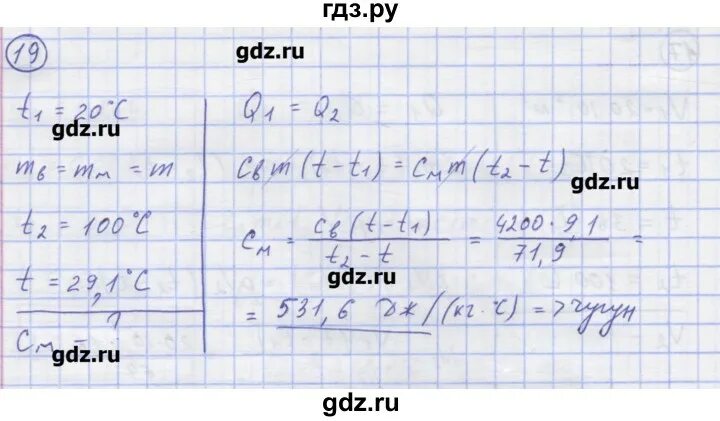 гдз.ру
19
gdz.ru
t₁ = 20°C
gdz.ru
mв = mм = m
t₂ = 100°C
t = 29,1°C
Cм - ?
gdz.ru
Q₁ = Q₂
Cвm(t-t₁) = Cмm(t₂-t)
gdz.ru
Cм = Cв(t-t₁) / t₂-t = 4200·9,1 / 71,9 =
gdz.ru
= 531,6 Дж/(кг·°C) => чугун
gdz.ru